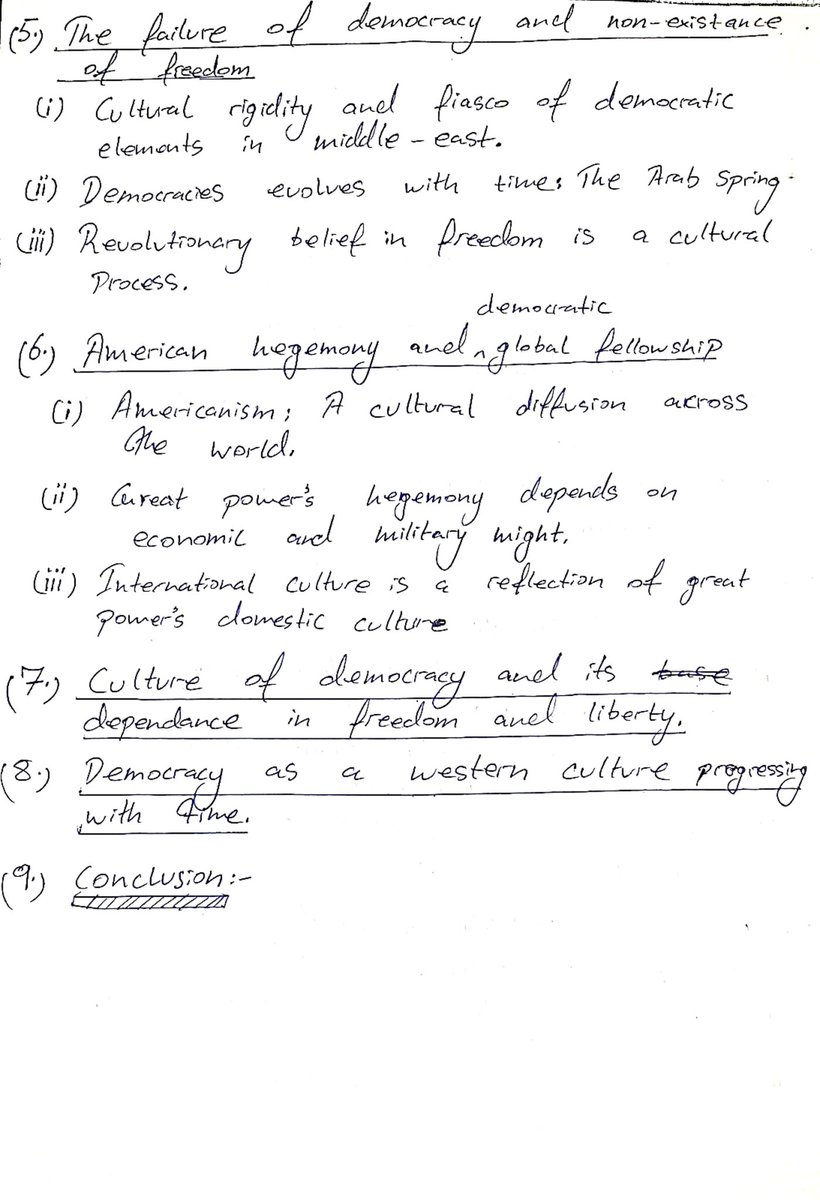 (5.) The failure of democracy and non-existance.
of freedom
(i) Cultural rigidity and fiasco of democratic
elements in middle-east.
(ii) Democracies evolves with time: The Arab Spring.
(iii) Revolutionary belief in freedom is a cultural
Process.
democratic
(6.) American hegemony and ^ global fellowship
(i) Americanism: A cultural diffusion across
the world.
(ii) Great power's hegemony depends on
economic and military might.
(iii) International culture is a reflection of great
power's domestic culture
(7.) Culture of democracy and its base
dependance in freedom and liberty.
(8.) Democracy as a western culture progressing
with time.
(9.) Conclusion:-